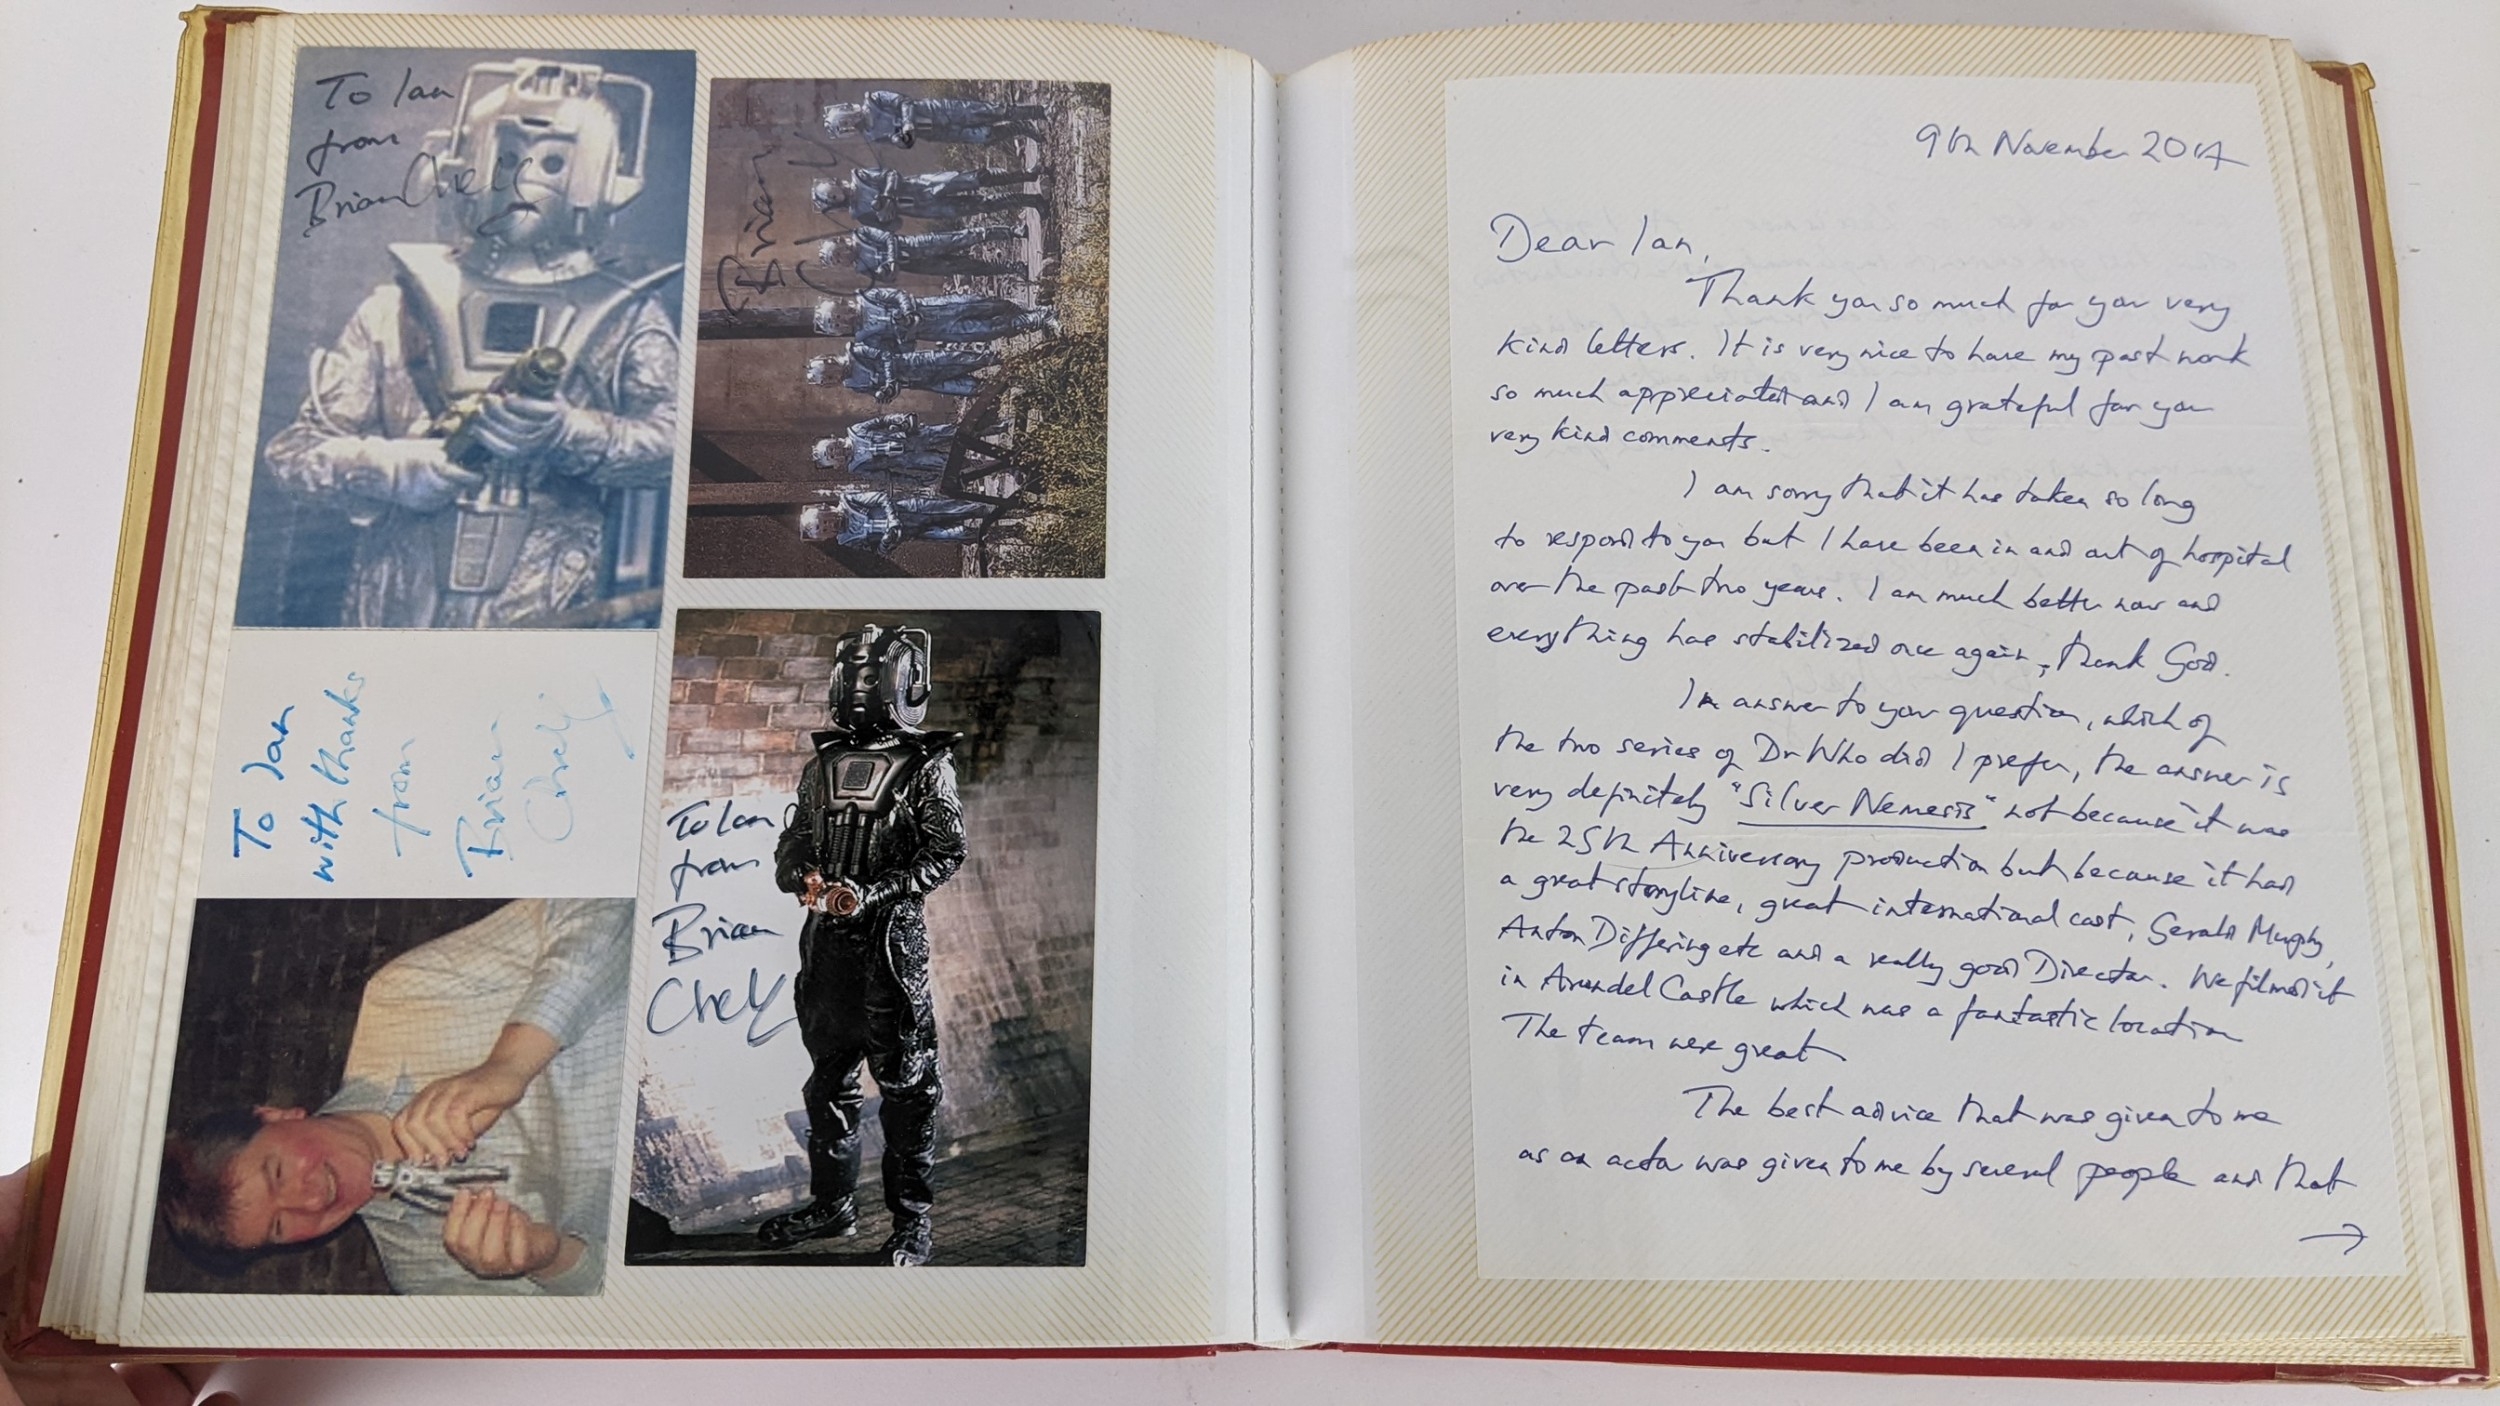 To Ian
from
Brian Chely
Brian
Chely
To Ian
with thanks
from
Brian
Chely
To Ian
from
Brian
Chely
9th November 2017
Dear Ian,
Thank you so much for your very
kind letters. It is very nice to have my past work
so much appreciated and I am grateful for your
very kind comments.
I am sorry that it has taken so long
to respond to you but I have been in and out of hospital
over the past two years. I am much better now and
everything has stabilized once again, thank God.
In answer to your question, which of
the two series of Dr Who did I prefer, the answer is
very definitely "Silver Nemesis" not because it was
the 25th Anniversary production but because it had
a great storyline, great international cast, Gerald Murphy,
Anton Differing etc and a really good Director. We filmed it
in Arundel Castle which was a fantastic location
The team were great
The best advice that was given to me
as an actor was given to me by several people and that
→